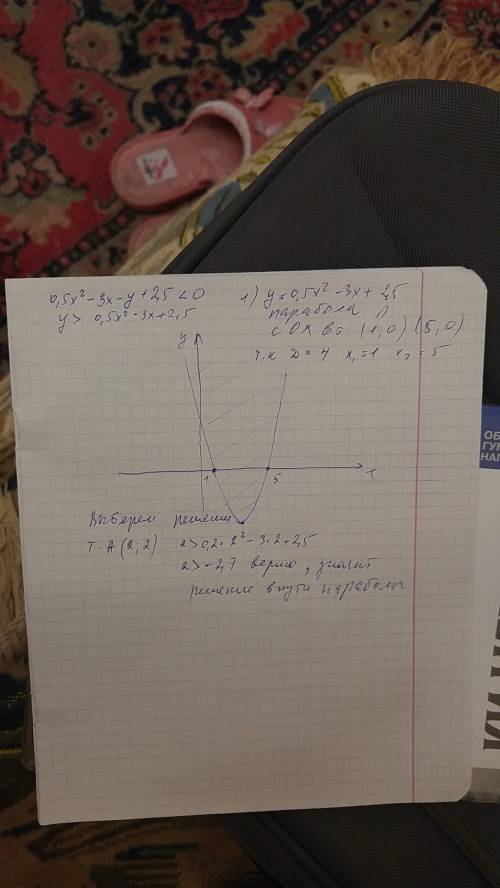 0,5x² - 3x - y + 2,5 < 0
y > 0,5x² - 3x + 2,5
1) y = 0,5x² - 3x + 2,5
парабола ∩
с OX в т (1,0) (5,0)
т.к D = 4 x₁ = 1 x₂ = 5
y
1 5 x
Выберем решения
т. A (2; 2) 2 > 0,2 · 2² - 3·2 + 2,5
2 > -2,7 верно, значит
решение внутри параболы
ОБ
ГУР
НАГ